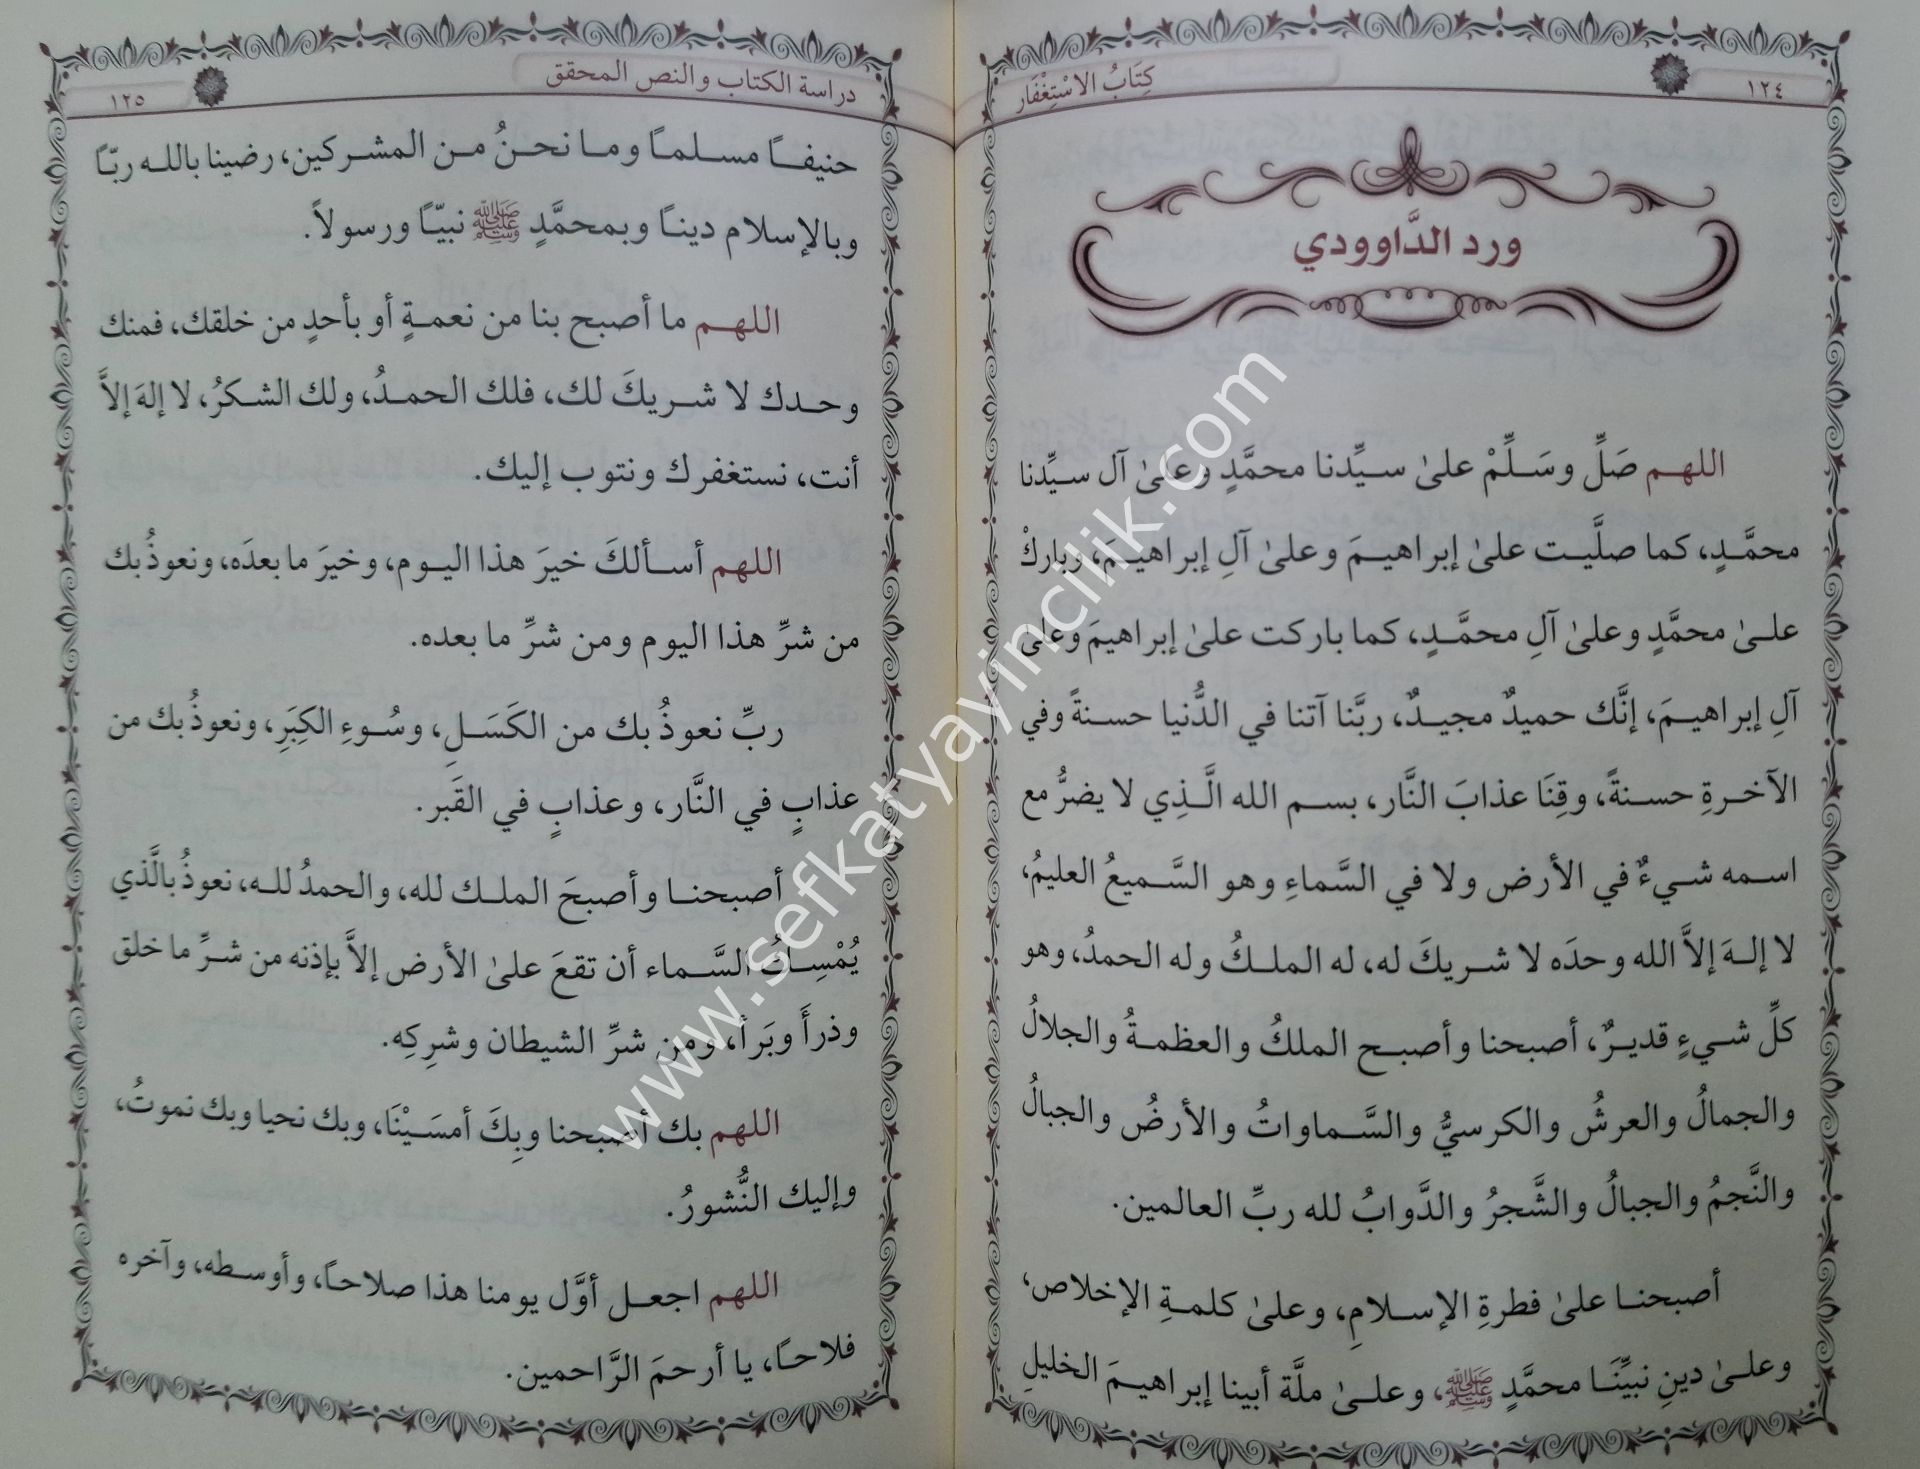 ١٢٤
كِتَابُ الاسْتِغْفَار
ورد الدَّاوودي
اللهم صَلِّ وسَلِّمْ علىٰ سيِّدنا محمَّدٍ وعلىٰ آل سيِّدنا
محمَّدٍ، كما صلَّيت علىٰ إبراهيمَ وعلىٰ آلِ إبراهيمَ، وباركْ
علىٰ محمَّدٍ وعلىٰ آلِ محمَّدٍ، كما باركت علىٰ إبراهيمَ وعلىٰ
آلِ إبراهيمَ، إنَّك حميدٌ مجيدٌ، ربَّنا آتنا في الدُّنيا حسنةً وفي
الآخرةِ حسنةً، وقِنَا عذابَ النَّار، بسم الله الَّذِي لا يضرُّ مع
اسمه شيءٌ في الأرض ولا في السَّماءِ وهو السَّميعُ العليمُ،
لا إلهَ إلاَّ الله وحدَه لا شريكَ له، له الملكُ وله الحمدُ، وهو
كلِّ شيءٍ قديرٌ، أصبحنا وأصبح الملكُ والعظمةُ والجلالُ
والجمالُ والعرشُ والكرسيُّ والسَّماواتُ والأرضُ والجبالُ
والنَّجمُ والجبالُ والشَّجرُ والدَّوابُ لله ربِّ العالمين.
أصبحنا علىٰ فطرةِ الإسلامِ، وعلىٰ كلمةِ الإخلاص،
وعلىٰ دينِ نبيِّنَا محمَّدٍ ﷺ، وعلىٰ ملَّة أبينا إبراهيمَ الخليلِ
دراسة الكتاب والنص المحقق
١٢٥
حنيفاً مسلماً وما نحنُ من المشركين، رضينا بالله ربّاً
وبالإسلام ديناً وبمحمَّدٍ ﷺ نبيّاً ورسولاً.
اللهم ما أصبح بنا من نعمةٍ أو بأحدٍ من خلقك، فمنك
وحدك لا شريكَ لك، فلك الحمدُ، ولك الشكرُ، لا إلهَ إلاَّ
أنت، نستغفرك ونتوب إليك.
اللهم أسألكَ خيرَ هذا اليوم، وخيرَ ما بعدَه، ونعوذُ بك
من شرِّ هذا اليوم ومن شرِّ ما بعده.
ربِّ نعوذُ بك من الكَسَلِ، وسُوءِ الكِبَرِ، ونعوذُ بك من
عذابٍ في النَّار، وعذابٍ في القَبر.
أصبحنا وأصبحَ الملك لله، والحمدُ لله، نعوذُ بالَّذي
يُمْسِكُ السَّماء أن تقعَ علىٰ الأرض إلاَّ بإذنه من شرِّ ما خلق
وذرأَ وبَرأ، ومن شرِّ الشيطان وشركِه.
اللهم بك أصبحنا وبِكَ أمسَيْنَا، وبك نحيا وبك نموتُ،
وإليك النُّشورُ.
اللهم اجعل أوَّل يومنا هذا صلاحاً، وأوسطه، وآخره
فلاحاً، يا أرحمَ الرَّاحمين.
www.sefkatyayincilik.com